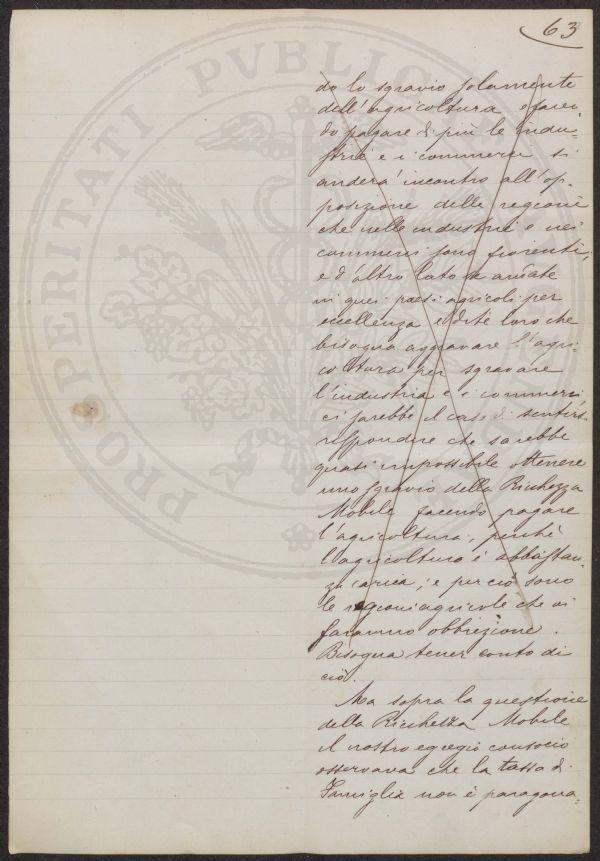 63
do lo sgravio solamente
dell'agricoltura e facen
do pagare di più le indu-
strie e i commerci si
anderà incontro all'op-
posizione delle regioni
che nelle industrie e nei
commerci sono fiorenti;
e d'altro lato se andate
in quei paesi agricoli per
eccellenza e dite loro che
bisogna aggravare l'agri-
coltura per sgravare
l'industria e i commerci
ci sarebbe il caso di sentirsi
rispondere che sarebbe
quasi impossibile ottenere
uno sgravio della Ricchezza
Mobile facendo pagare
l'agricoltura, perché
l'agricoltura è abbastan-
za carica; e per ciò sono
le regioni agricole che vi
faranno obbiezione.
Bisogna tener conto di
ciò.
Ma sopra la questione
della Ricchezza Mobile
il nostro egregio consocio
osservava che la tassa di
Famiglia non è paragona-
PRO PUBLICA PROSPERITATI